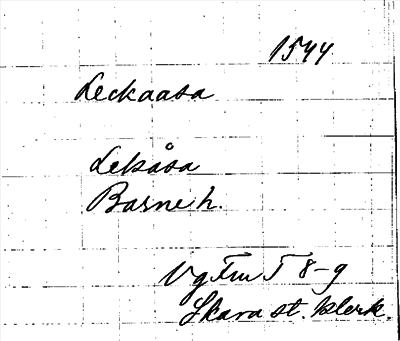 1544
Leckaasa
Lekåsa
Barne h.
Vg Fm T 8-9
Skara st. klerk.